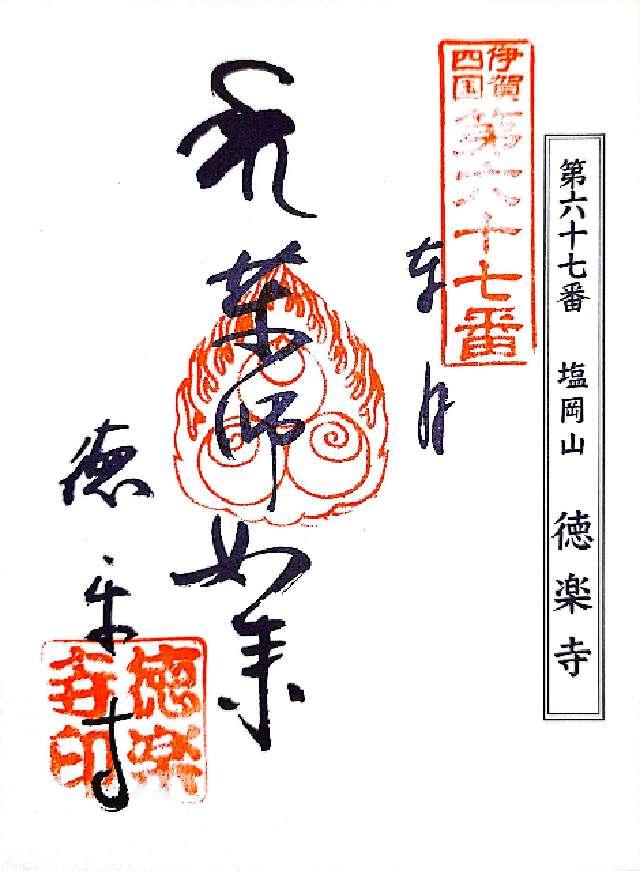 第六十七番 塩岡山 徳楽寺
伊賀
四国
第六十七番
奉
薬師如来
徳楽寺
徳楽
寺印